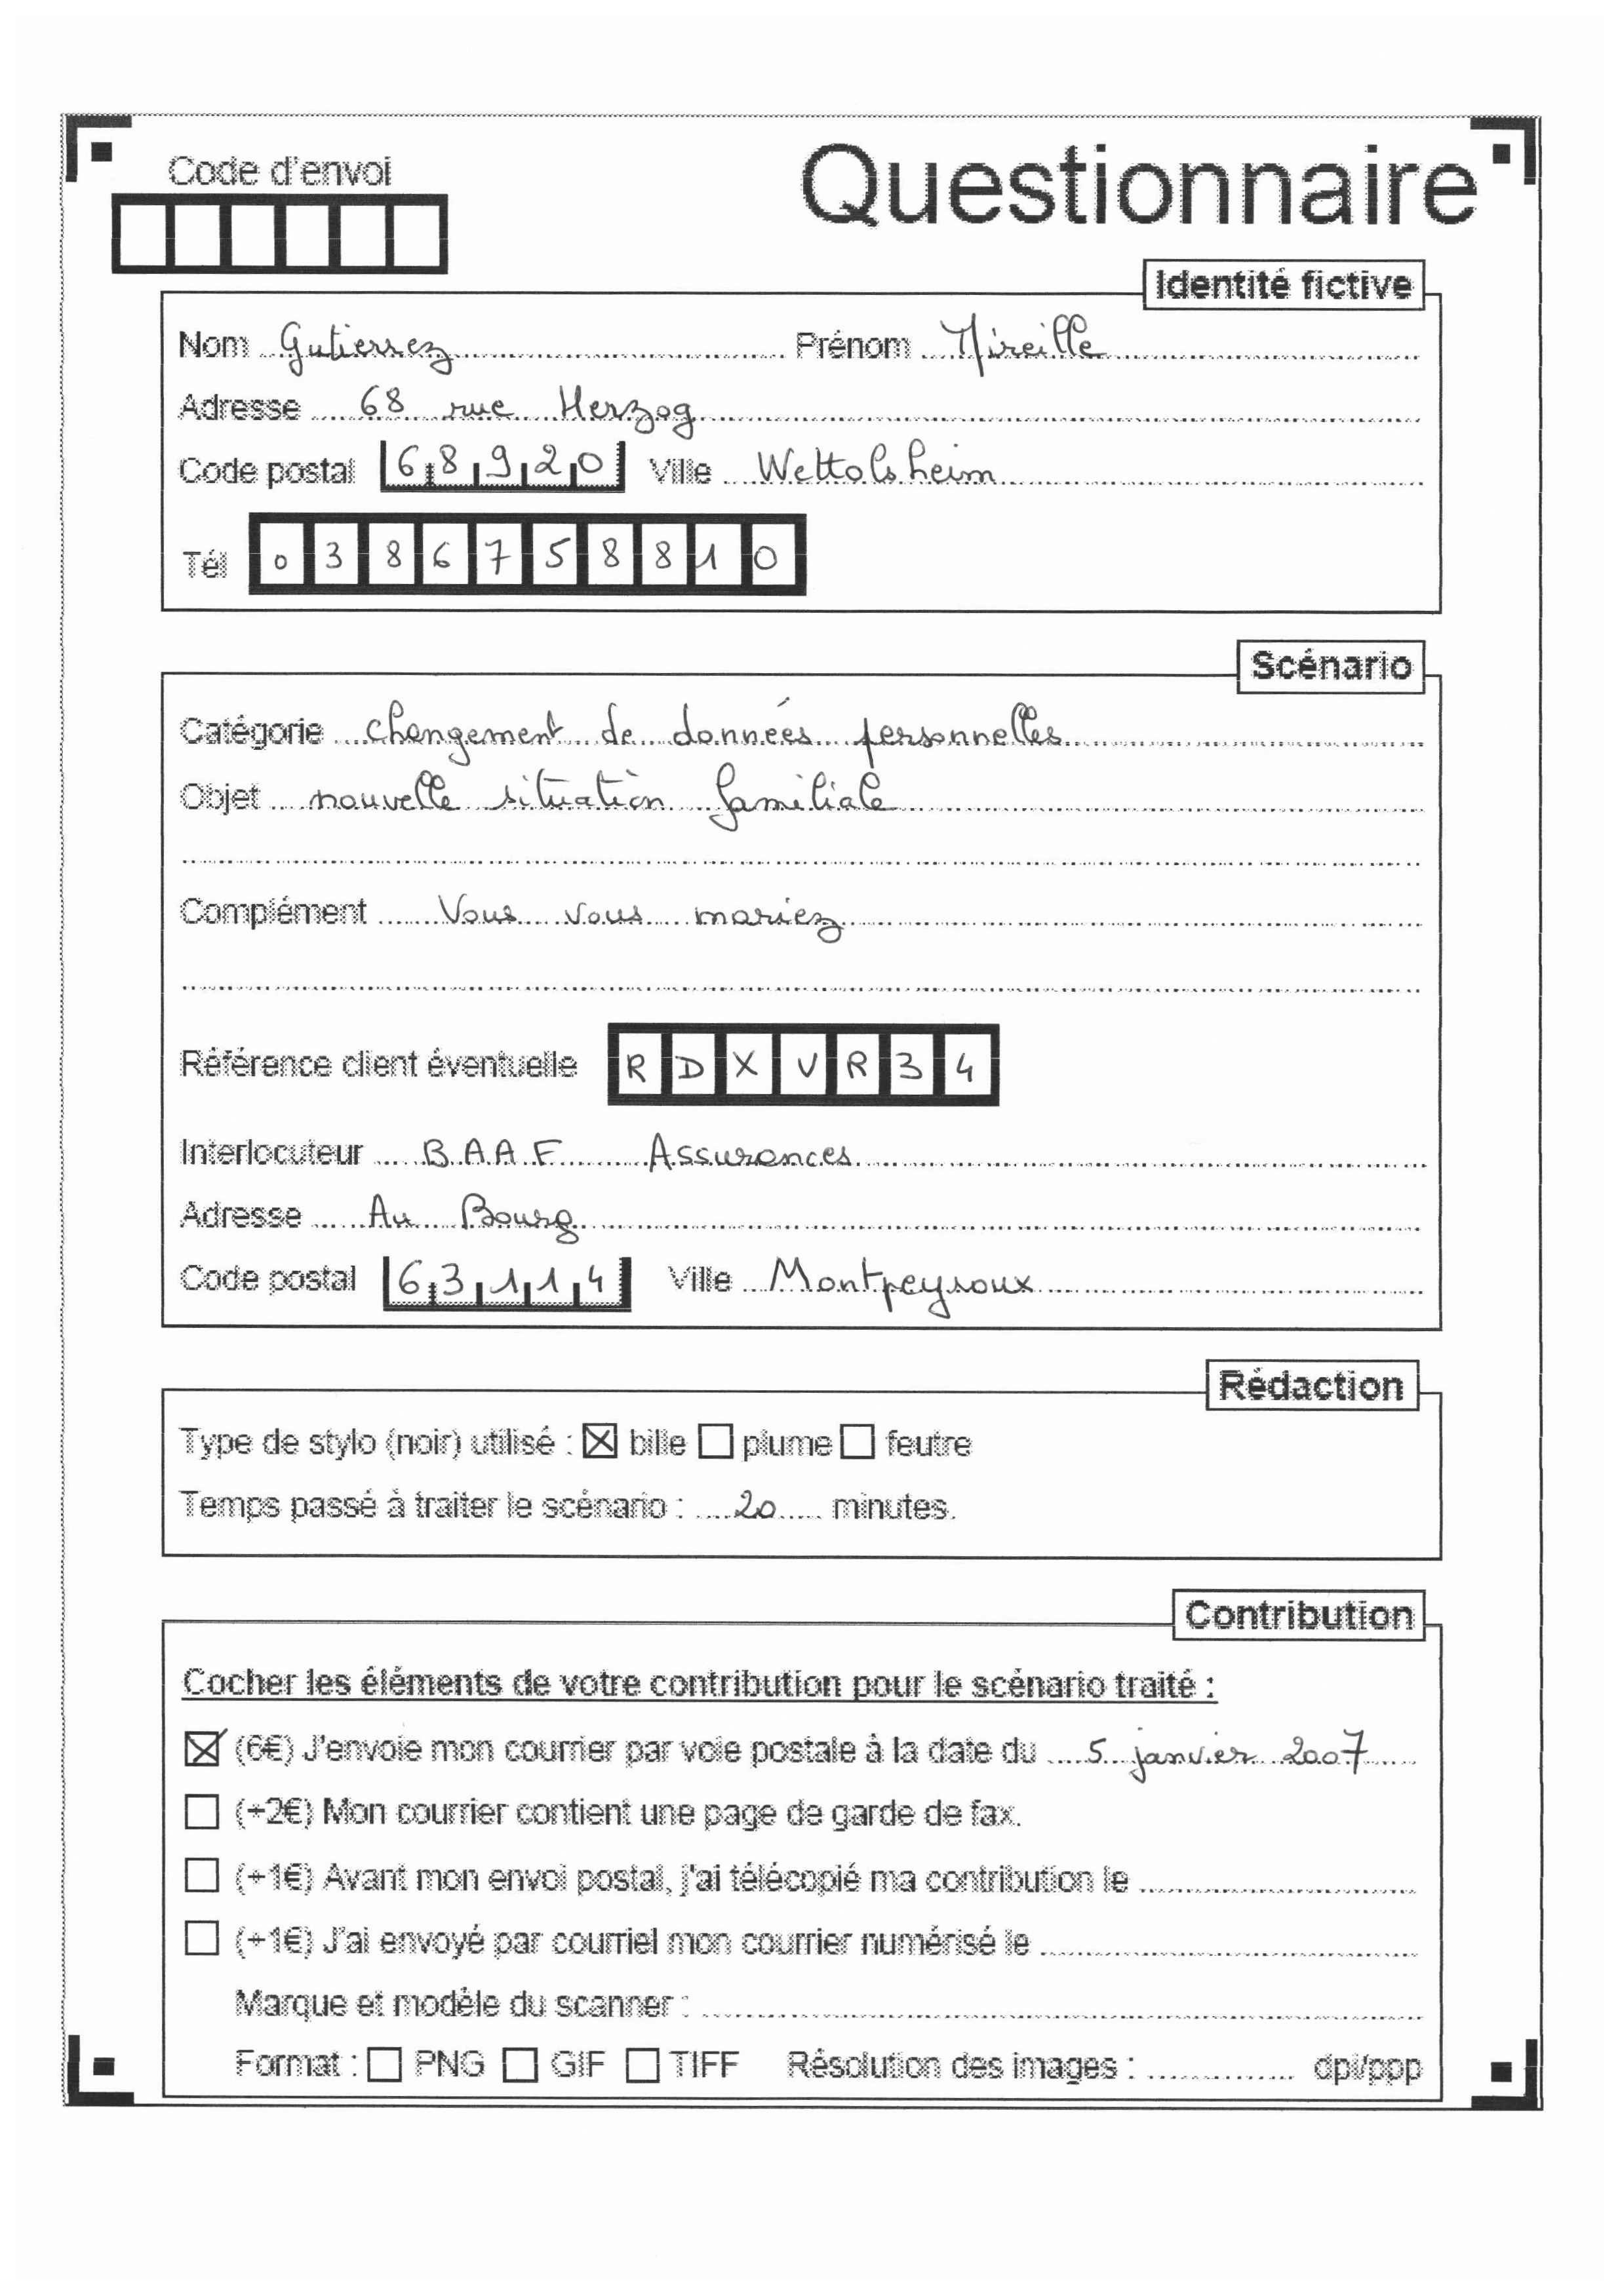 Code d'envoi
Questionnaire
Identité fictive
Nom Gutierrez Prénom Mireille
Adresse 68 rue Herzog
Code postal 68920 Ville Wettolsheim
Tél 0386758810
Scénario
Catégorie changement de données personnelles
Objet nouvelle situation familiale
Complément Vous vous mariez
Référence client éventuelle RDXVR34
Interlocuteur BAAF Assurances
Adresse Au Bourg
Code postal 63114 Ville Montpeyroux
Rédaction
Type de stylo (noir) utilisé : ☒ bille ☐ plume ☐ feutre
Temps passé à traiter le scénario : 20 minutes.
Contribution
Cocher les éléments de votre contribution pour le scénario traité :
☒ (6€) J'envoie mon courrier par voie postale à la date du 5 janvier 2007
☐ (+2€) Mon courrier contient une page de garde de fax.
☐ (+1€) Avant mon envoi postal, j'ai télécopié ma contribution le
☐ (+1€) J'ai envoyé par courriel mon courrier numérisé le
Marque et modèle du scanner :
Format : ☐ PNG ☐ GIF ☐ TIFF Résolution des images : dpi/ppp